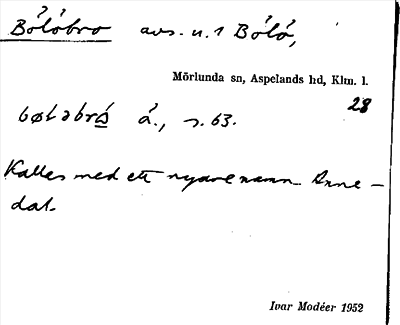 Bölöbro avs. u. 1 Bölö,
Mörlunda sn, Aspelands hd, Klm. l.
28
bøtəbrå å., s. 63.
Kallas med ett nyare namn Anne-
dal.
Ivar Modéer 1952